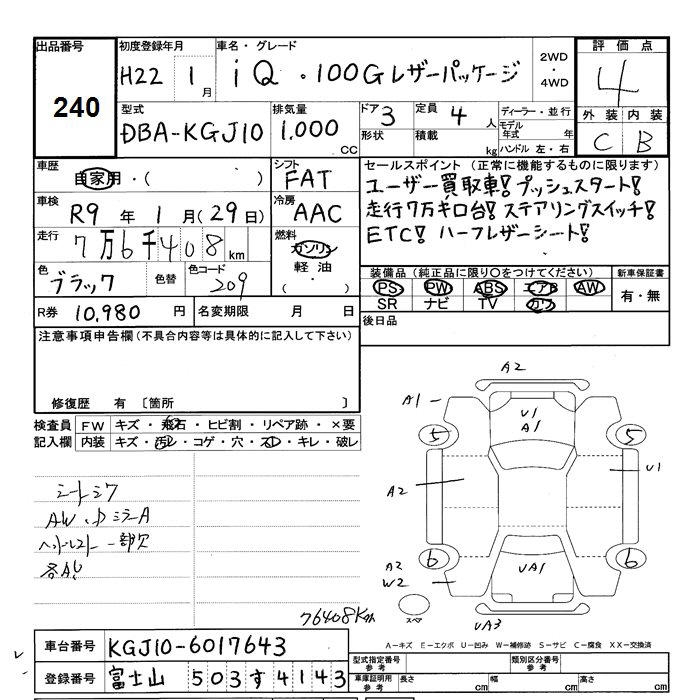 出品番号 初度登録年月 車名・グレード
240
H22 1月 iQ・100Gレザーパッケージ 2WD・4WD
評価点
4
外装 内装
C B
型式 排気量 ドア 3 定員 4人 ディーラー・並行
DBA-KGJ10 1.000 CC 形状 積載 kg モデル年式 年
ハンドル 左・右
車歴 自家用・( )
シフト FAT
車検 R9年1月(29日)
冷房 AAC
走行 7万6千408km
燃料 ガソリン 軽油 ( ・ )
色 ブラック 色替 色コード 209
R券 10,980円 名変期限 月 日
セールスポイント(正常に機能するものに限ります)
ユーザー買取車!プッシュスタート!
走行7万キロ台!ステアリングスイッチ!
ETC! ハーフレザーシート!
装備品(純正品に限り〇をつけてください) 新車保証書
PS PW ABS エアB AW 有・無
SR ナビ TV カワ
後日品
注意事項申告欄(不具合内容等は具体的に記入して下さい)
修復歴 有 〔箇所 〕
検査員 FW キズ・飛石・ヒビ割・リペア跡・×要
記入欄 内装 キズ・汚レ・コゲ・穴・スレ・キレ・破レ
シートシワ
AW、ドミラーA
ヘッドレスト一部欠
各AU
76408Km
A2
A1
U1
A1
5
5
U1
A2
6
6
A2
W2
UA1
スペア
UA3
A-キズ E-エクボ U-凹み W-補修跡 S-サビ C-腐食 XX-交換済
車台番号 KGJ10-6017643
登録番号 富士山 503す4143
型式指定番号 参考 類別区分番号 参考
車庫証明用 参考 長さ cm 幅 cm 高さ cm